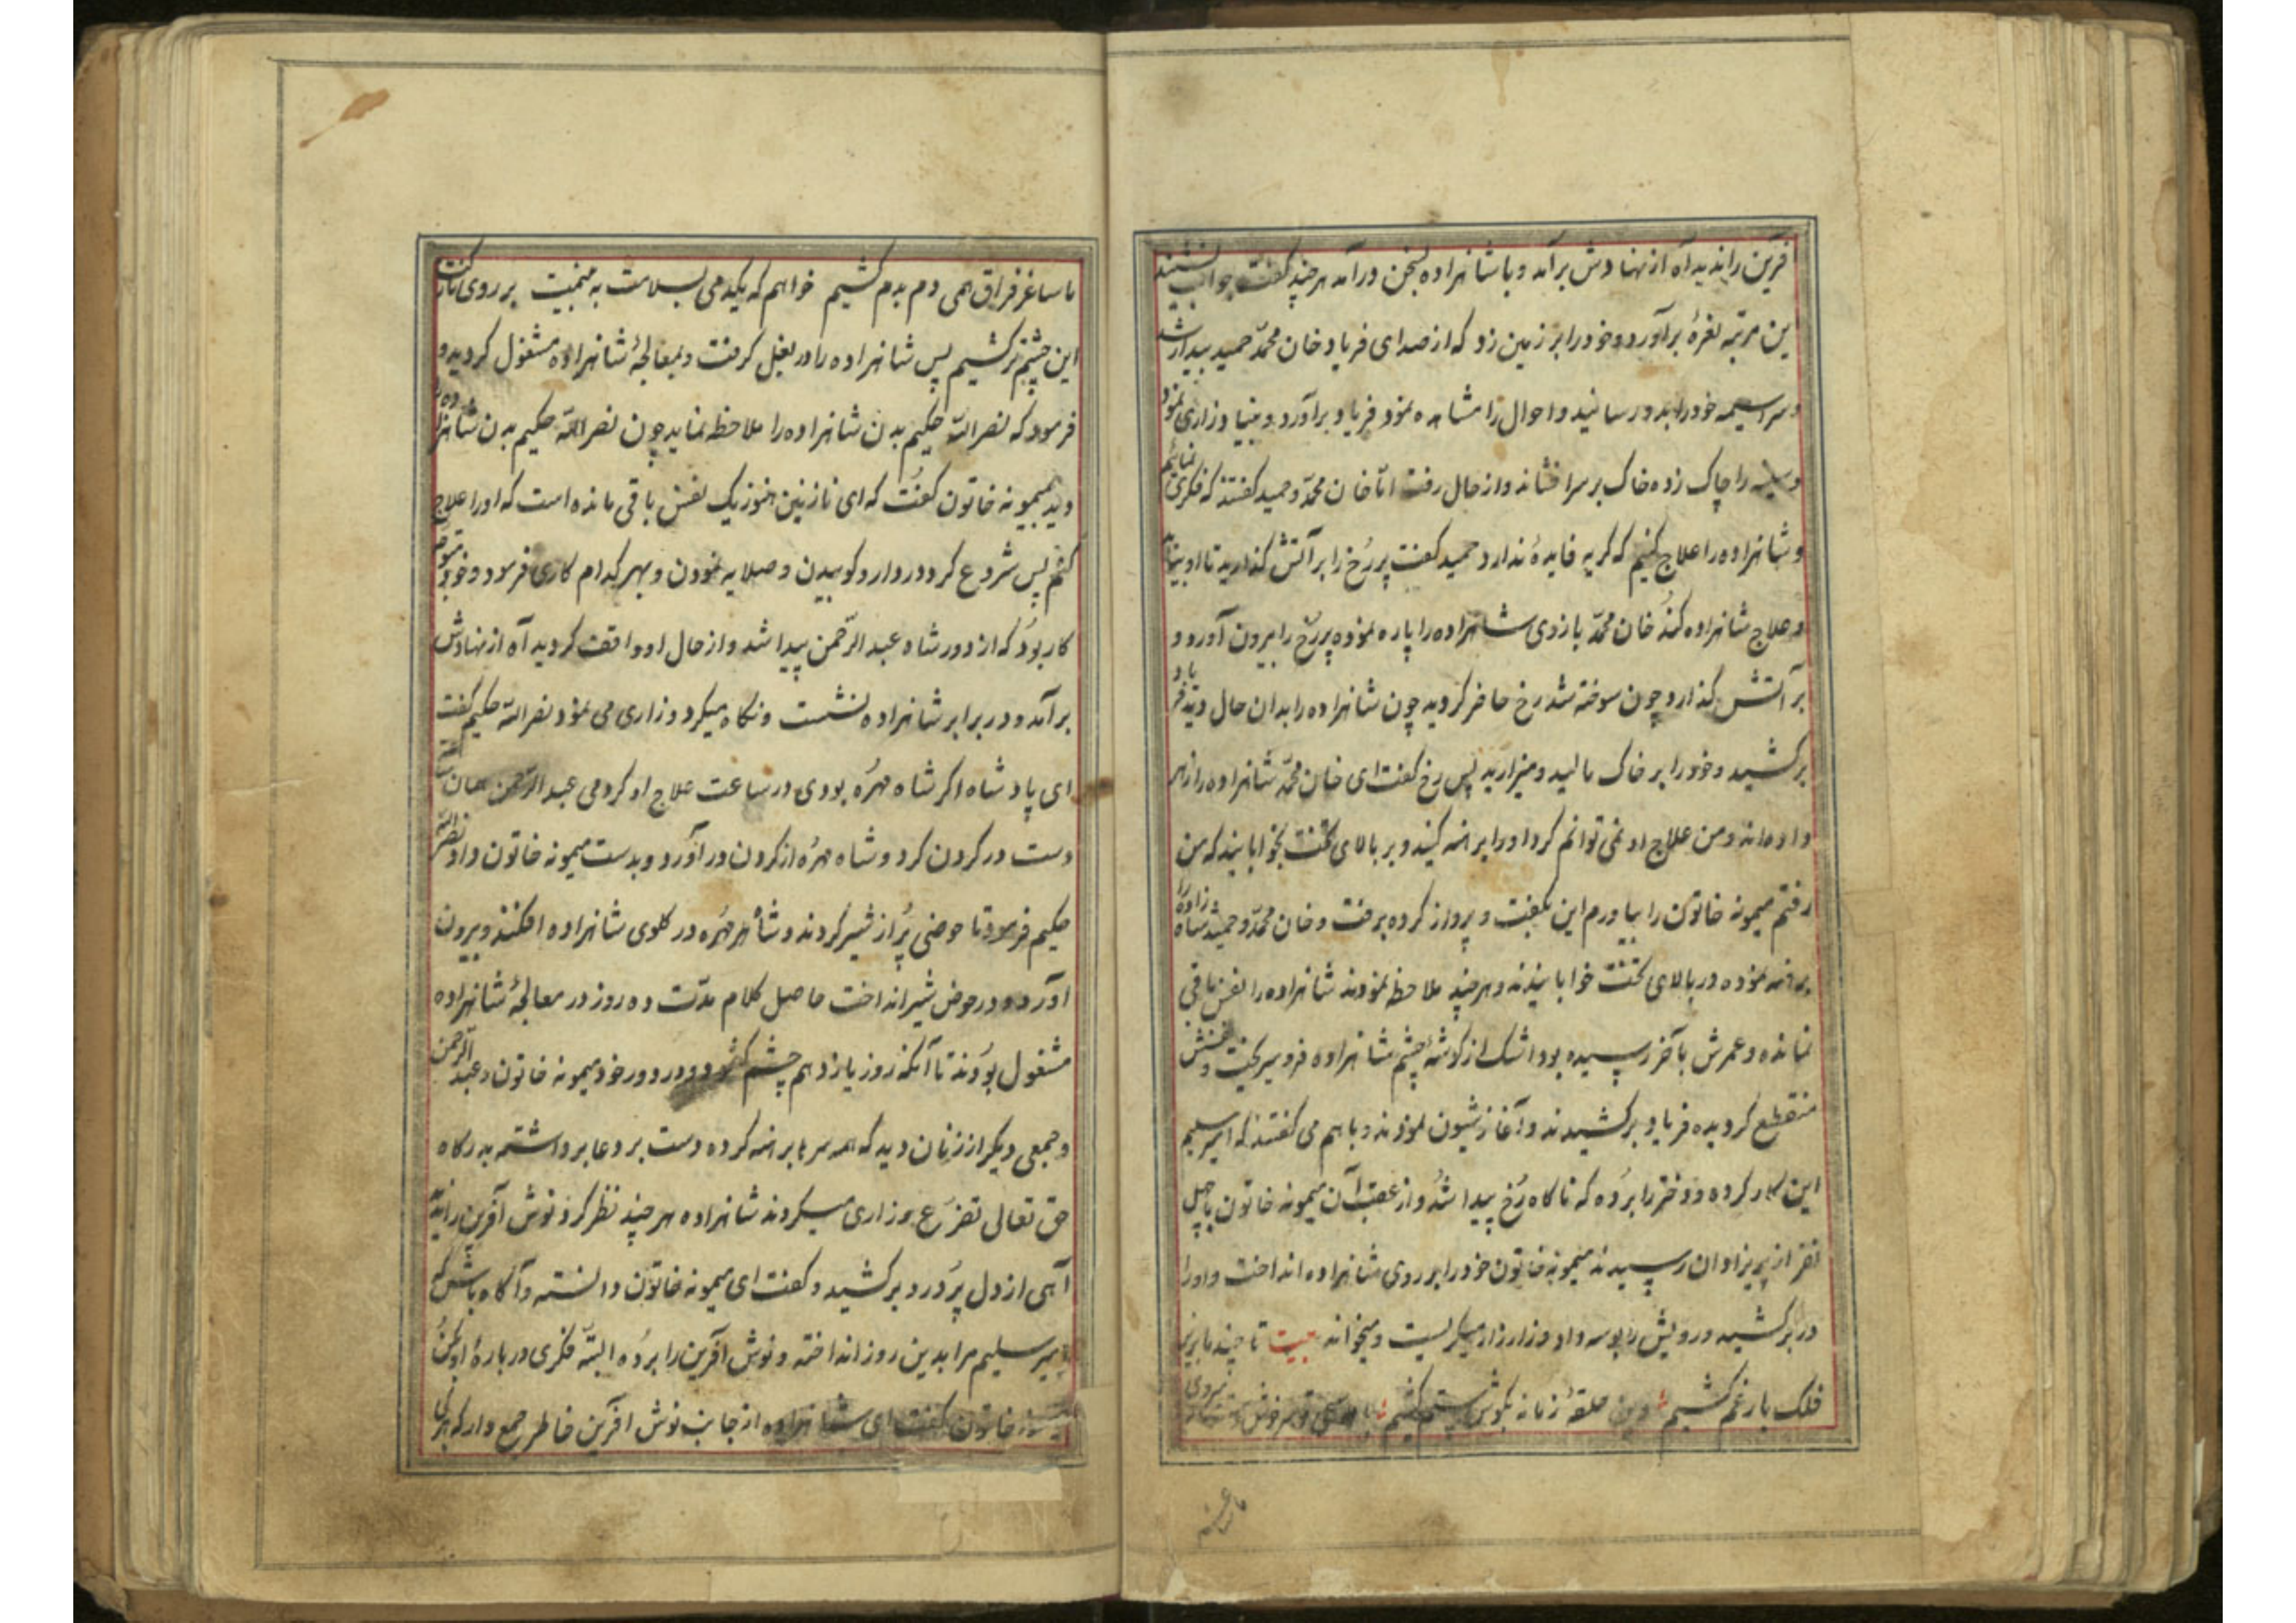 فرین را ندید آه از نهادش برآمد و با شاهزاده بسخن درآمد هرچند گفت جواب نشنید
این مرتبه نعرهٔ برآورد و خود را بر زمین زد که از صدای فریاد خان محمّد حمید بیدار شد
و سراسیمه خود را بدو رسانید و احوال را مشاهده نمود فریاد برآورد و بنیاد زاری نمود
و سینه را چاک زده خاک بر سر افشاند و از حال رفت امّا خان محمّد و حمید گفتند که فکری نمائیم
و شاهزاده را علاج کنیم که گریه فایدهٔ ندارد حمید گفت پر رخ را بر آتش گذارید تا او بیاید
و علاج شاهزاده کند خان محمّد بازوی شاهزاده را پاره نموده پر رخ را بیرون آورد و
بر آتش گذارد چون سوخته شد رخ حاضر گردید چون شاهزاده را بدان حال دید فریاد
برکشید و خود را بر خاک مالید و میزارید پس رخ گفت ای خان محمّد شاهزاده را زهر
داده‌اند و من علاج او نمی توانم کرد او را برهنه کنید و بر بالای تخت بخوابانید که من
رفتم میمونه خاتون را بیاورم این بگفت و پرواز کرده برفت و خان محمّد و حمید شاهزاده را
برهنه نموده در بالای تخت خوابانیدند و هرچند ملاحظه نمودند شاهزاده را نفس باقی
نمانده و عمرش بآخر رسیده بود اشک از گوشهٔ چشم شاهزاده فرو میریخت و نفسش
منقطع گردیده فریاد برکشیدند و آغاز شیون نمودند و باهم می گفتند که امیر سلیم
این کار کرده و دختر را برده که ناگاه رخ پیدا شد و از عقب آن میمونه خاتون با چهل
نفر از پریزادان رسیدند میمونه خاتون خود را بر روی شاهزاده انداخت و او را
در برکشید و رویش را بوسه داد و زار زار میگریست و میخواند بیت تا چند ما بزیر
فلک بار غم کشیم وین حلقهٔ زمانه بگوش ستم کشیم
ما ساغر
ما ساغر فراق همی دم بدم کشیم خواهم که یکدمی بسلامت به بینمت بر روی
این چشم تر کشیم پس شاهزاده را در بغل گرفت و بمعالجهٔ شاهزاده مشغول گردید و
فرمود که نصر اللّه حکیم بدن شاهزاده را ملاحظه نماید چون نصر اللّه حکیم بدن شاهزاده
دید بمیمونه خاتون گفت که ای نازنین هنوز یک نفس باقی مانده است که او را علاج
کنم پس شروع کرد در دارو کوبیدن و صلایه نمودن و بهر کدام کاری فرمود و خود متوجه
کار بود که از دور شاه عبد الرّحمن پیدا شد و از حال او واقف گردید آه از نهادش
برآمد و در برابر شاهزاده نشست و نگاه میکرد و زاری می نمود نصر اللّه حکیم گفت
ای پادشاه اگر شاه مهره بودی در ساعت علاج او کردمی عبد الرّحمن همان
دست در گردن کرد و شاه مهره از گردن درآورد و بدست میمونه خاتون داد نصر اللّه
حکیم فرمود تا حوضی پر از شیر کردند و شاه مهره در گلوی شاهزاده افکنند و بیرون
آورد و در حوض شیر انداخت حاصل کلام مدّت ده روز در معالجهٔ شاهزاده
مشغول بودند تا آنکه روز یازدهم چشم گشود و در دور خود میمونه خاتون و عبد الرّحمن
و جمعی دیگر از زنان دید که همه سرها برهنه کرده دست بر دعا برداشته بدرگاه
حق تعالی تضرّع و زاری میکردند شاهزاده هرچند نظر کرد نوش آفرین را ندید
آهی از دل پر درد برکشید و گفت ای میمونه خاتون دانسته و آگاه باش که
امیر سلیم مرا بدین روز انداخته و نوش آفرین را برده البتّه فکری در بارهٔ او کن
میمونه خاتون گفت ای شاهزاده از جانب نوش آفرین خاطر جمع دار که